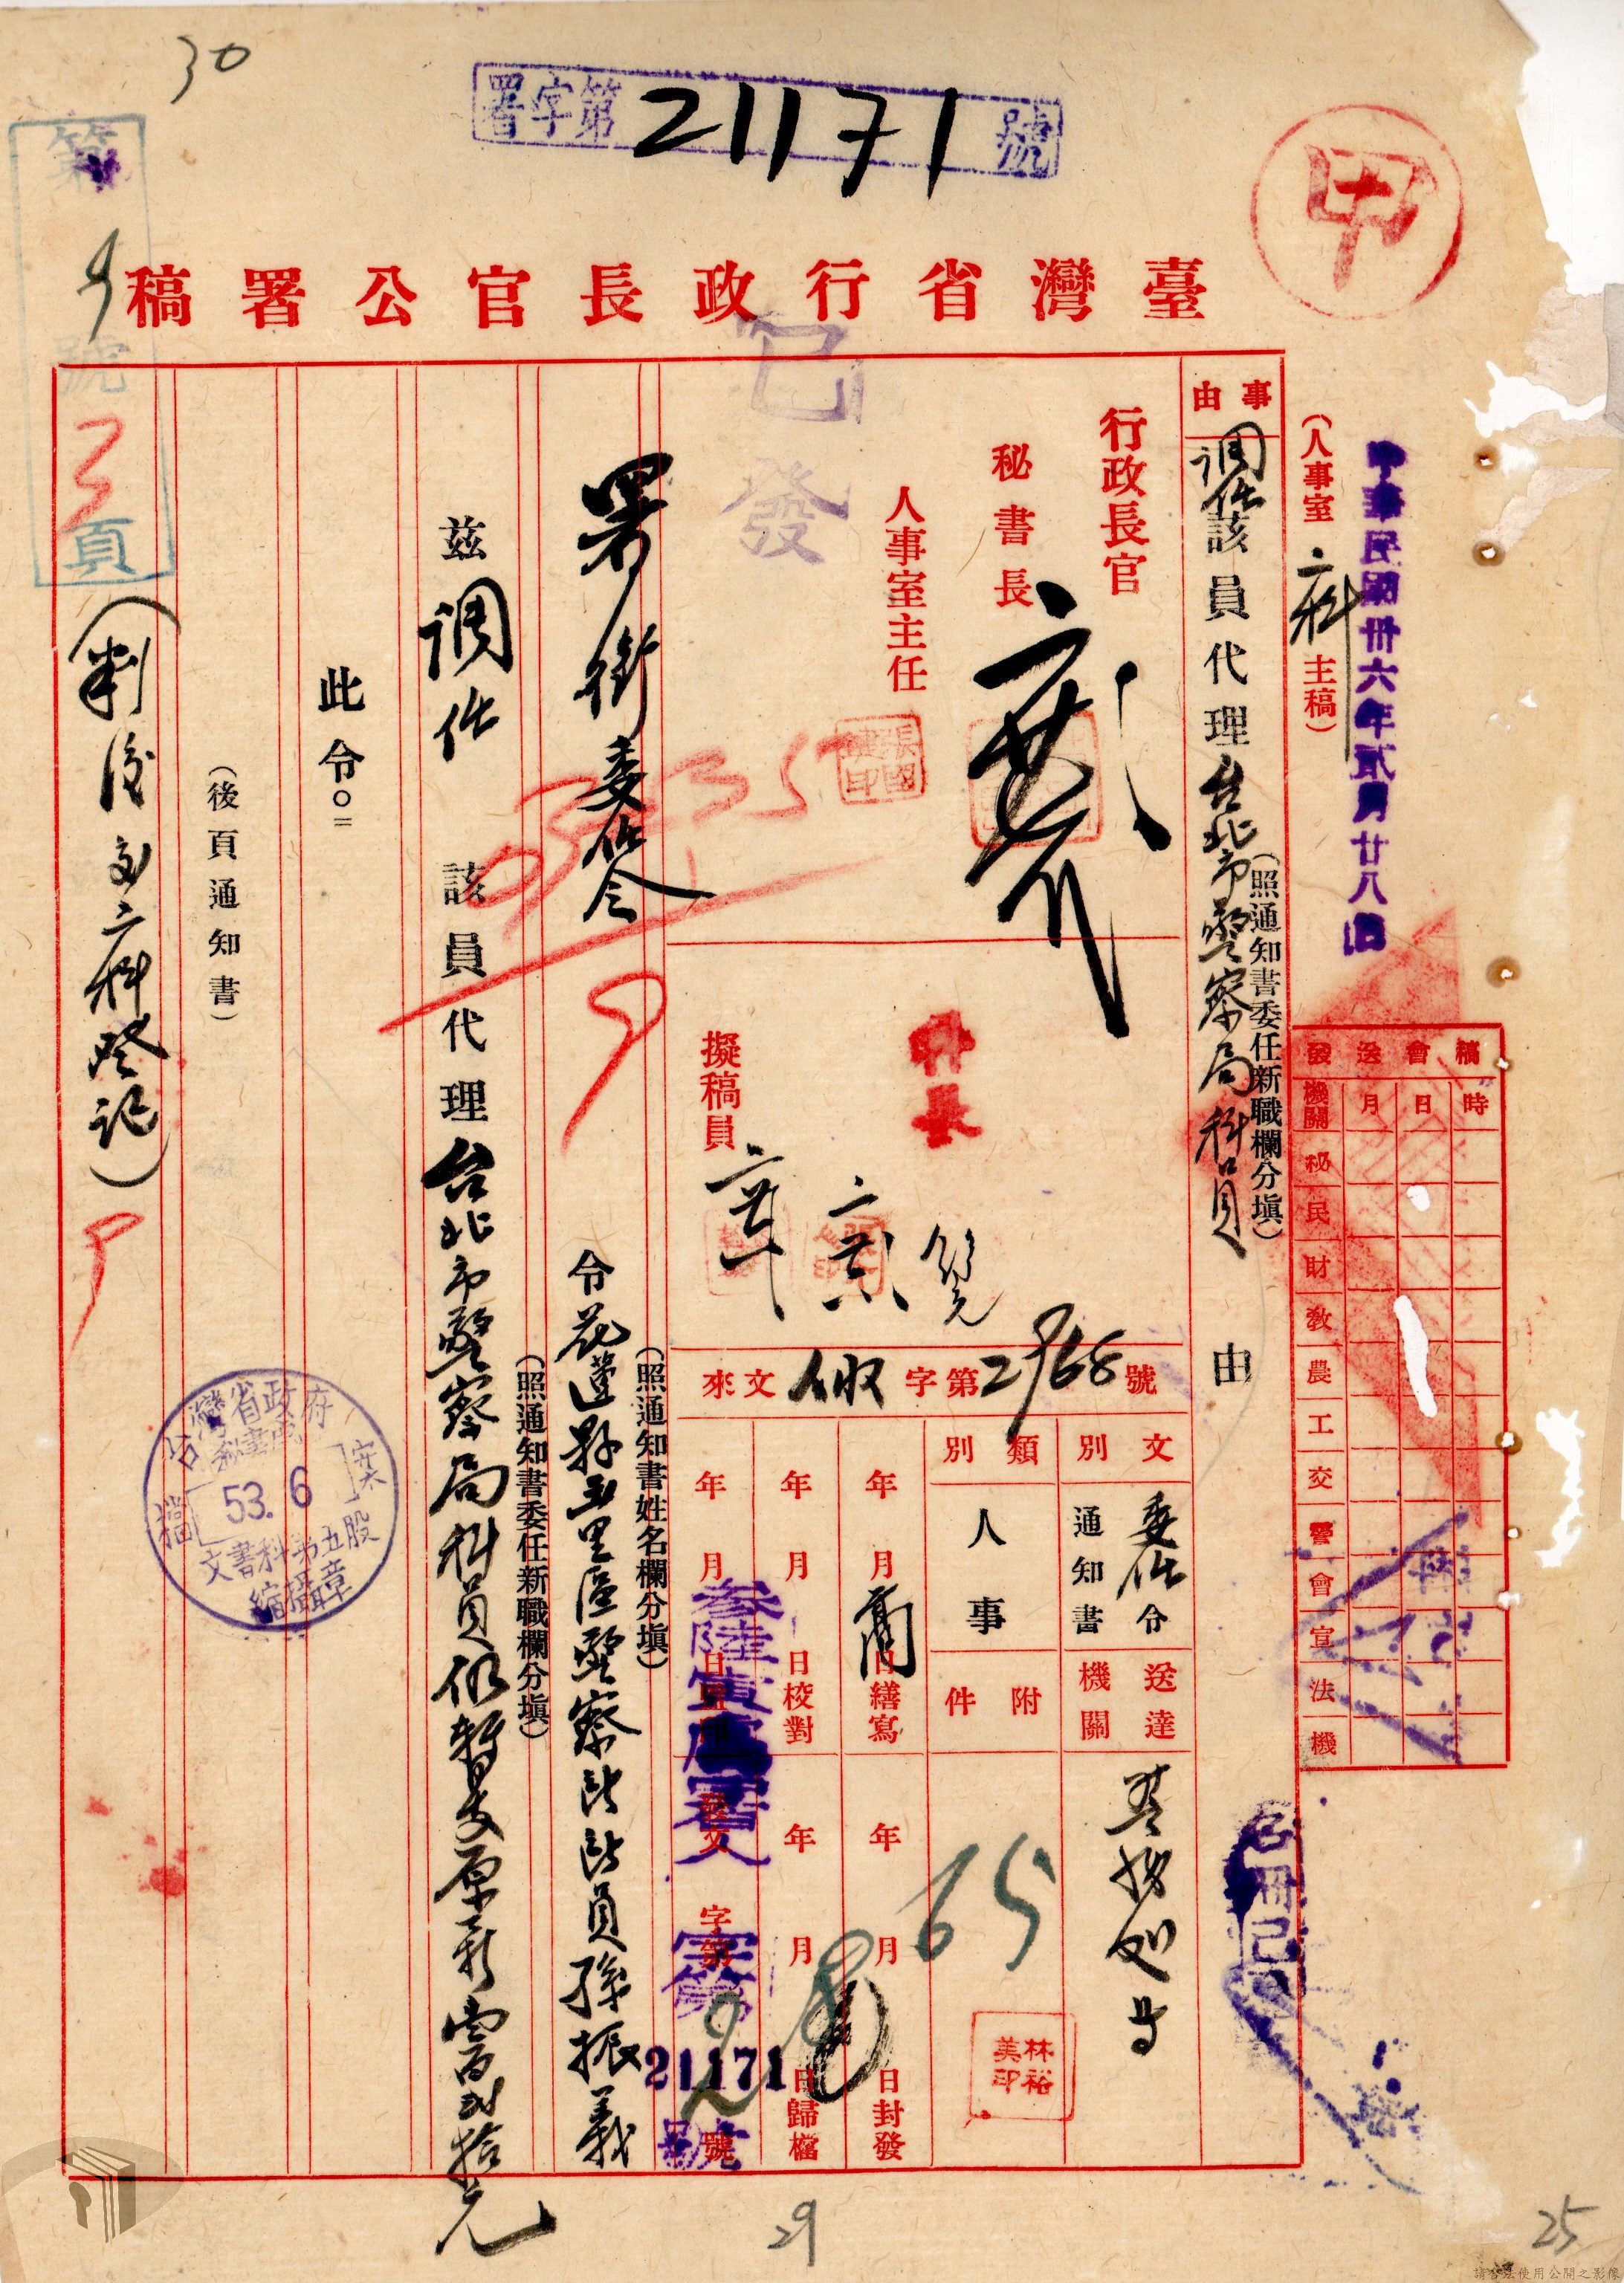 30
署字第21171號
甲
臺灣省行政長官公署稿
中華民國卅六年貳月廿八日
（人事室 二科 主稿）
稿會送發
時日月機關
秘
民
財
教
農
工
交
警
會
宣
法
機
事由
調任該員代理台北市警察局科員 由
（照通知書委任新職欄分塡）
行政長官
秘書長
人事室主任
已發
張國鍵印
科長
擬稿員
來文 字第2968號
文別 委任令 通知書
送達機關
類別 人事
附件
65
林裕美印
年 月 日繕寫
年 月 日校對
年 月 日
年 月 日封發
年 月 日歸檔
發文 字第 號
字第21171號
署銜委任令
令花蓮縣玉里區警察所所員孫振義
（照通知書姓名欄分塡）
茲調任 該員代理台北市警察局科員仍暫支原薪壹百貳拾元
（照通知書委任新職欄分塡）
此令。
（後頁通知書）
（判後交二科登記）
第9號
3頁
台灣省政府
秘書處
檔案
53. 6
文書科第五股
縮攝章
名冊已
29
25